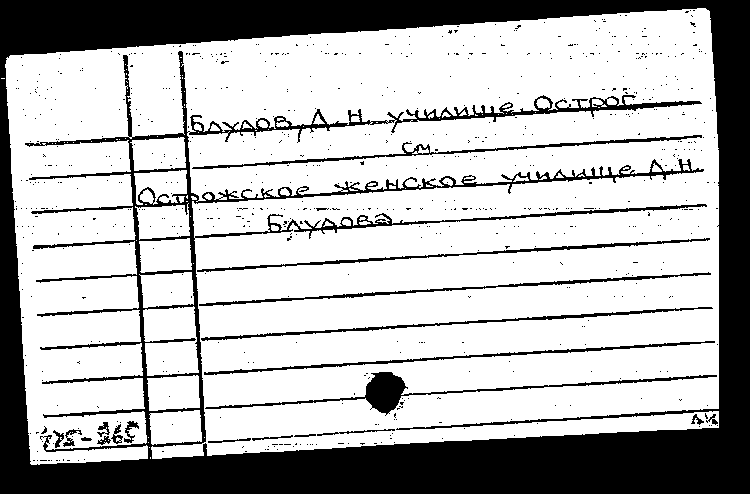 Блудов, Д. Н. училище. Острог
см.
Острожское женское училище Д. Н.
Блудова.